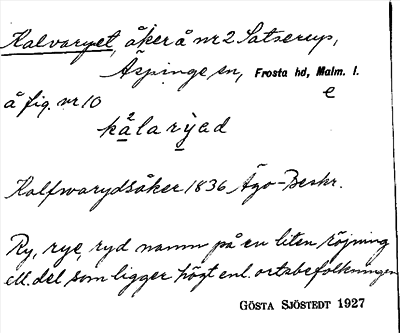 Kalvaryet, åker å nr 2 Satserup,
Äspinge sn, Frosta hd, Malm. l.
å fig. nr 10 e
kalaryad
Kalfwarydsåker 1836 Ägo-Beskr.
Ry, rye, ryd namn på en liten röjning
ell. del som ligger högt enl. ortsbefolkningen
GÖSTA SJÖSTEDT 1927